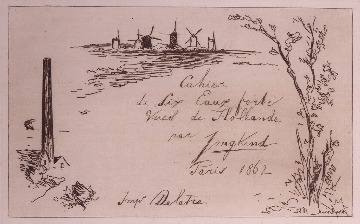 Cahier
de six Eaux forte
Vues de Hollande
par Jongkind
Paris 1862
Imp. Delatre